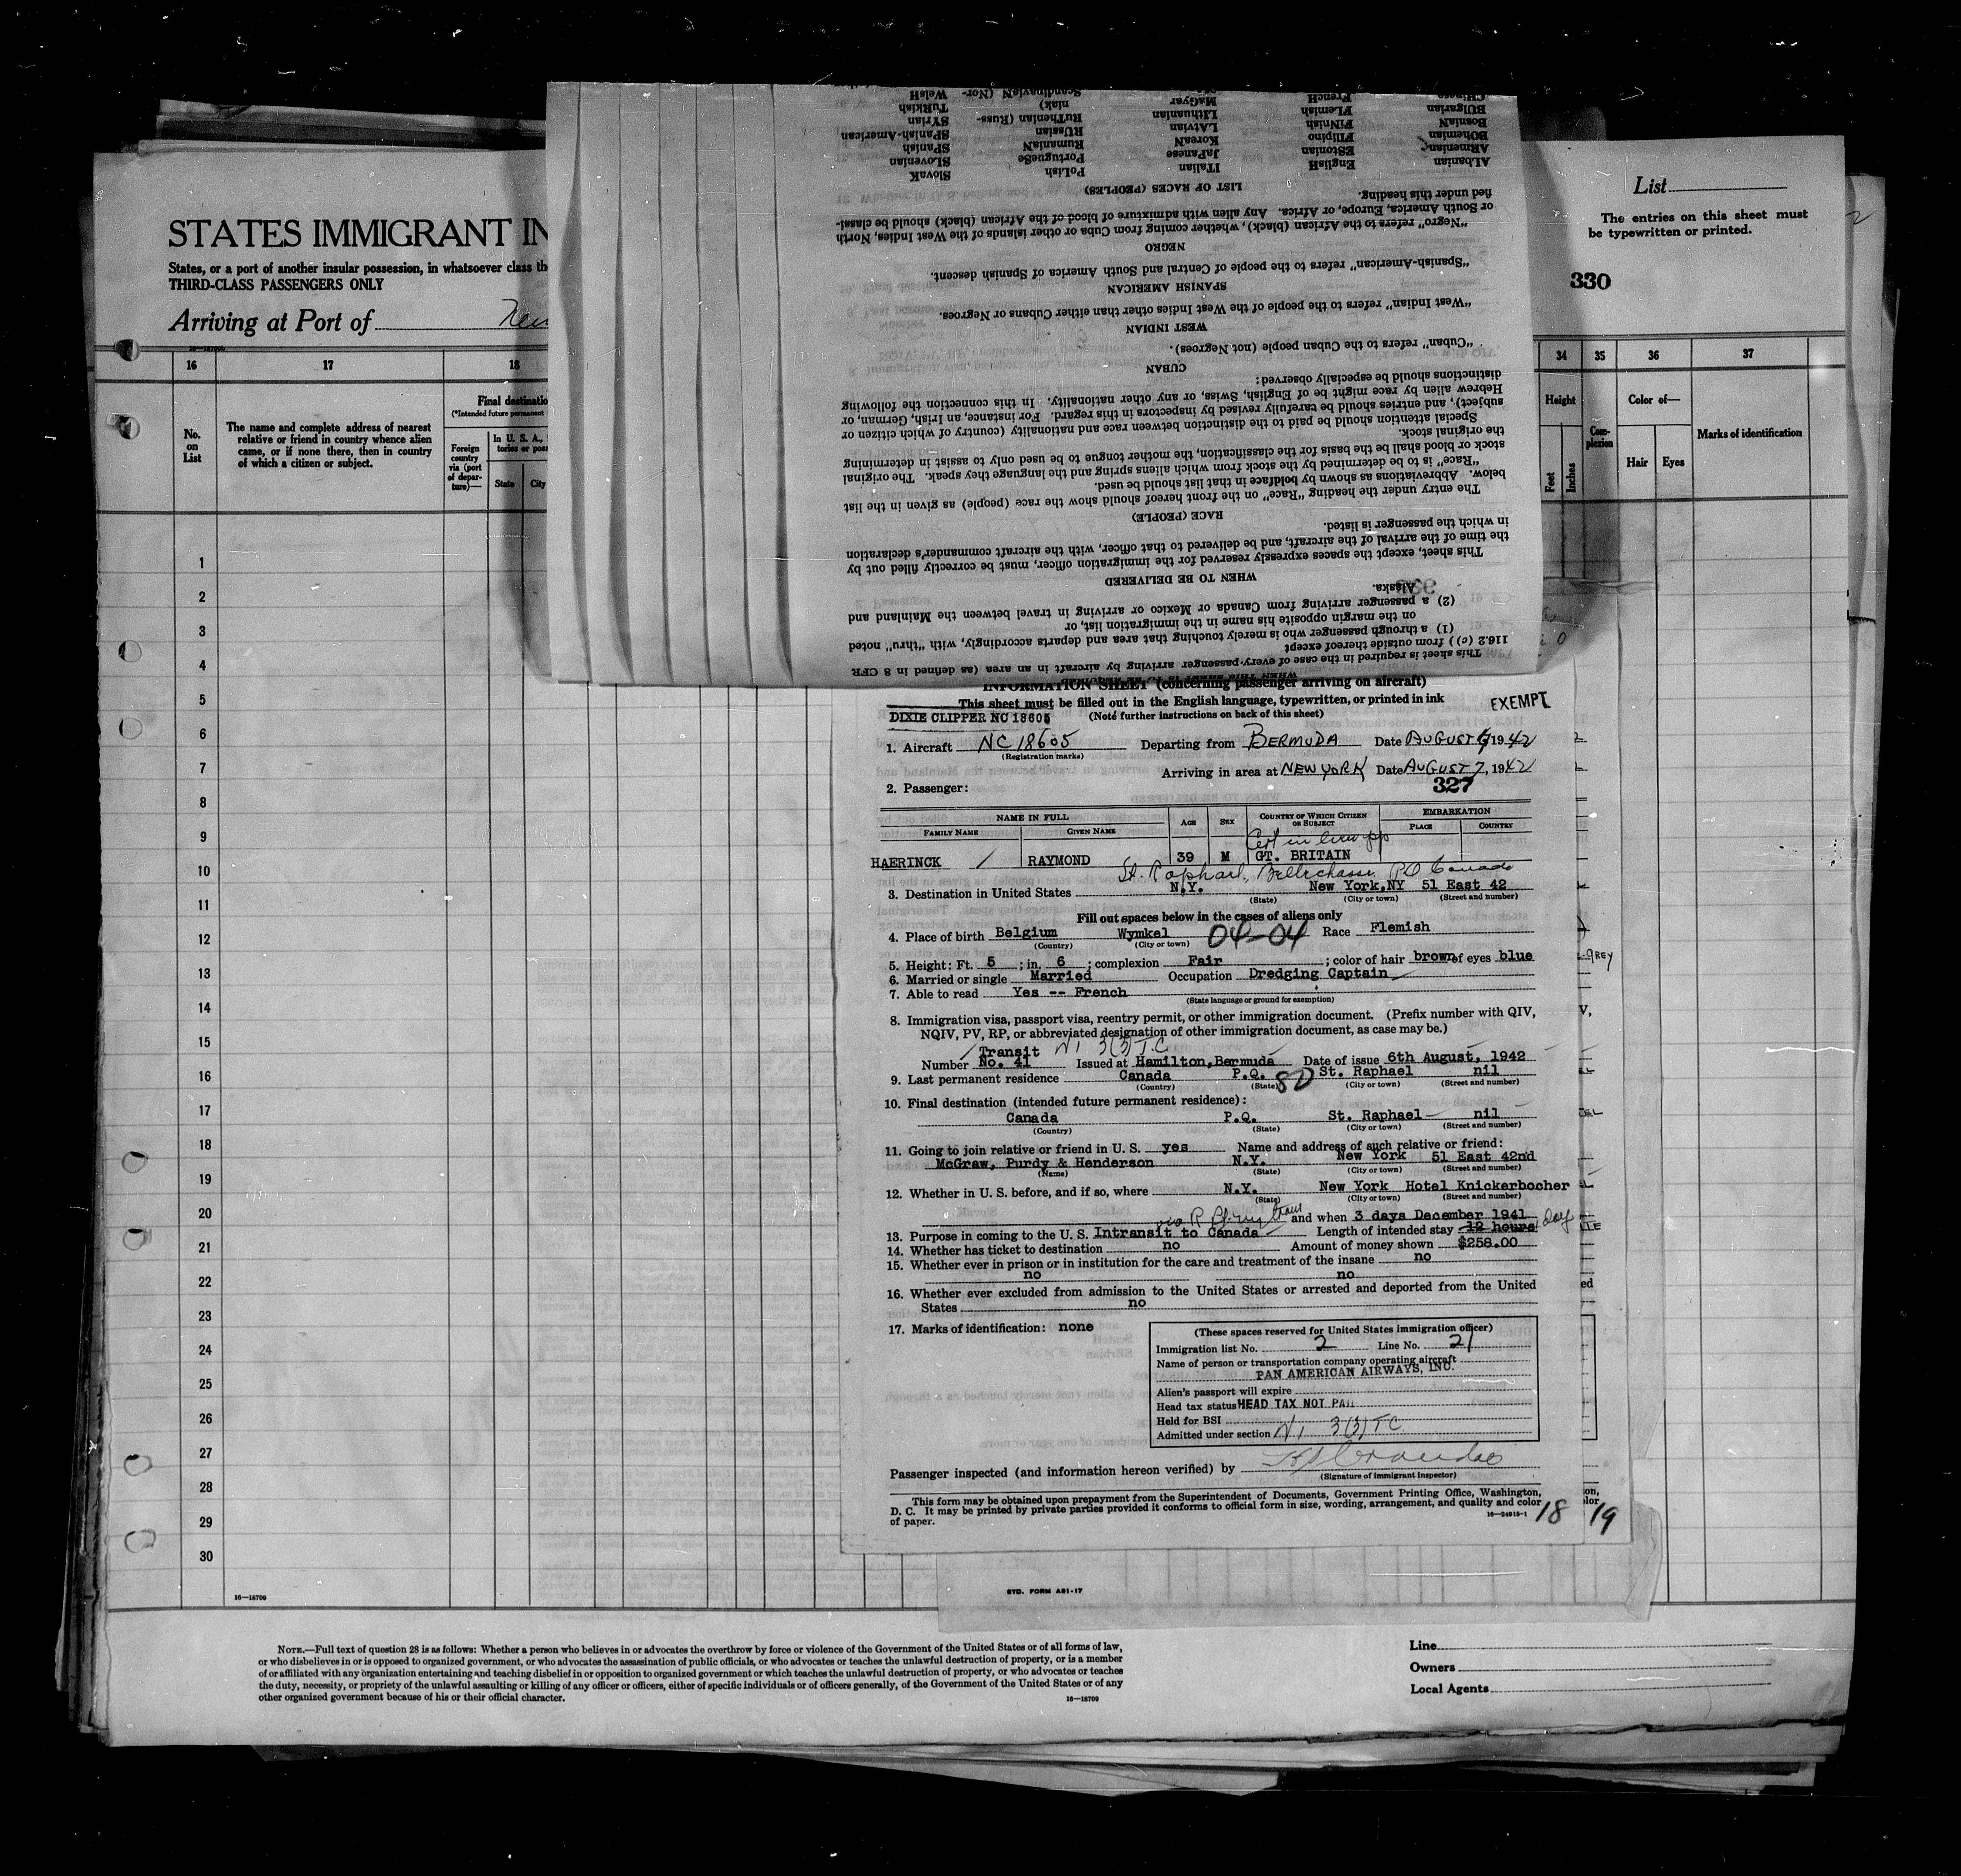 STATES IMMIGRANT IN
States, or a port of another insular possession, in whatsoever class th
THIRD-CLASS PASSENGERS ONLY
Arriving at Port of
List
The entries on this sheet must
be typewritten or printed.
330
16 17 18 34 35 36 37
No. on List
The name and complete address of nearest
relative or friend in country whence alien
came, or if none there, then in country
of which a citizen or subject.
Final destinatio
(*Intended future permanent
Foreign country via (port of depar-ture)—
In U. S. A.,
State City
Height
Feet Inches
Com-plexion
Color of—
Hair Eyes
Marks of identification
1
2
3
4
5
6
7
8
9
10
11
12
13
14
15
16
17
18
19
20
21
22
23
24
25
26
27
28
29
30
16—18709
This sheet is required in the case of every passenger arriving by aircraft in an area (as defined in 8 CFR
116.2 (c)) from outside thereof except
(1) a through passenger who is merely touching that area and departs accordingly, with "thru" noted
on the margin opposite his name in the immigration list, or
(2) a passenger arriving from Canada or Mexico or arriving in travel between the Mainland and
Alaska.
WHEN TO BE DELIVERED
This sheet, except the spaces expressly reserved for the immigration officer, must be correctly filled out by
the time of the arrival of the aircraft, and be delivered to that officer, with the aircraft commander's declaration
in which the passenger is listed.
RACE (PEOPLE)
The entry under the heading "Race" on the front hereof should show the race (people) as given in the list
below. Abbreviations as shown by boldface in that list should be used.
"Race" is to be determined by the stock from which aliens spring and the language they speak. The original
stock or blood shall be the basis for the classification, the mother tongue to be used only to assist in determining
the original stock.
Special attention should be paid to the distinction between race and nationality (country of which citizen or
subject), and entries should be carefully revised by inspectors in this regard. For instance, an Irish, German, or
Hebrew alien by race might be of English, Swiss, or any other nationality. In this connection the following
distinctions should be especially observed:
CUBAN
"Cuban" refers to the Cuban people (not Negroes).
WEST INDIAN
"West Indian" refers to the people of the West Indies other than either Cubans or Negroes.
SPANISH AMERICAN
"Spanish-American" refers to the people of Central and South America of Spanish descent.
NEGRO
"Negro" refers to the African (black), whether coming from Cuba or other islands of the West Indies, North
or South America, Europe, or Africa. Any alien with admixture of blood of the African (black) should be classi-
fied under this heading.
LIST OF RACES (PEOPLES)
ALbanian EnglisH ITalian PoLish SlovaK
ARmenian EStonian JaPanese PortugueSe SLOvenian
BOhemian FIlipino KoreaN RumaniaN SPanisH
BosniaN FINnish LAtvian RUssian SPanish-American
BUlgarian FLemish LIthuanian RuThenian (Russ- SYrian
FrencH MaGyar niak) TuRkish
ScandinaviaN (Nor- WelsH
INFORMATION SHEET (concerning passenger arriving on aircraft)
This sheet must be filled out in the English language, typewritten, or printed in ink
EXEMPT
DIXIE CLIPPER NC 18605 (Note further instructions on back of this sheet)
1. Aircraft NC 18605 Departing from BERMUDA Date AUGUST 6, 1942
(Registration marks)
Arriving in area at NEW YORK Date AUGUST 7, 1942
2. Passenger: 327
NAME IN FULL AGE SEX COUNTRY OF WHICH CITIZEN OR SUBJECT EMBARKATION
FAMILY NAME GIVEN NAME PLACE COUNTRY
Cert in lieu pp
HAERINCK / RAYMOND 39 M GT. BRITAIN
St. Raphael, Bellechasse PQ Canada
3. Destination in United States N.Y. New York,NY 51 East 42
(State) (City or town) (Street and number)
Fill out spaces below in the cases of aliens only
4. Place of birth Belgium Wymkel 04-04 Race Flemish
(Country) (City or town)
5. Height: Ft. 5 ; in. 6 ; complexion Fair ; color of hair brown of eyes blue
6. Married or single Married Occupation Dredging Captain
7. Able to read Yes -- French
(State language or ground for exemption)
8. Immigration visa, passport visa, reentry permit, or other immigration document. (Prefix number with QIV,
NQIV, PV, RP, or abbreviated designation of other immigration document, as case may be.)
Transit 3(3) T.C
Number No. 41 Issued at Hamilton,Bermuda Date of issue 6th August, 1942
9. Last permanent residence Canada P.Q. 80 St. Raphael nil
(Country) (State) (City or town) (Street and number)
10. Final destination (intended future permanent residence):
Canada P.Q. St. Raphael nil
(Country) (State) (City or town) (Street and number)
11. Going to join relative or friend in U. S. yes Name and address of such relative or friend:
McGraw, Purdy & Henderson N.Y. New York 51 East 42nd
(Name) (State) (City or town) (Street and number)
12. Whether in U. S. before, and if so, where N.Y. New York Hotel Knickerbocher
(State) (City or town) (Street and number)
and when 3 days December 1941
13. Purpose in coming to the U. S. Intransit to Canada Length of intended stay 12 hours 1 day
14. Whether has ticket to destination no Amount of money shown $258.00
15. Whether ever in prison or in institution for the care and treatment of the insane no
no no
16. Whether ever excluded from admission to the United States or arrested and deported from the United
States no
17. Marks of identification: none
(These spaces reserved for United States immigration officer)
Immigration list No. 2 Line No. 21
Name of person or transportation company operating aircraft
PAN AMERICAN AIRWAYS, INC.
Alien's passport will expire
Head tax status HEAD TAX NOT PAID
Held for BSI
Admitted under section 3(3) TC
Passenger inspected (and information hereon verified) by
(Signature of immigrant inspector)
This form may be obtained upon prepayment from the Superintendent of Documents, Government Printing Office, Washington,
D. C. It may be printed by private parties provided it conforms to official form in size, wording, arrangement, and quality and color
of paper. 16—24915-1
18 19
STD. FORM AS1-17
NOTE.—Full text of question 28 is as follows: Whether a person who believes in or advocates the overthrow by force or violence of the Government of the United States or of all forms of law,
or who disbelieves in or is opposed to organized government, or who advocates the assassination of public officials, or who advocates or teaches the unlawful destruction of property, or is a member
of or affiliated with any organization entertaining and teaching disbelief in or opposition to organized government or which teaches the unlawful destruction of property, or who advocates or teaches
the duty, necessity, or propriety of the unlawful assaulting or killing of any officer or officers, either of specific individuals or of officers generally, of the Government of the United States or of any
other organized government because of his or their official character. 16—18709
Line
Owners
Local Agents